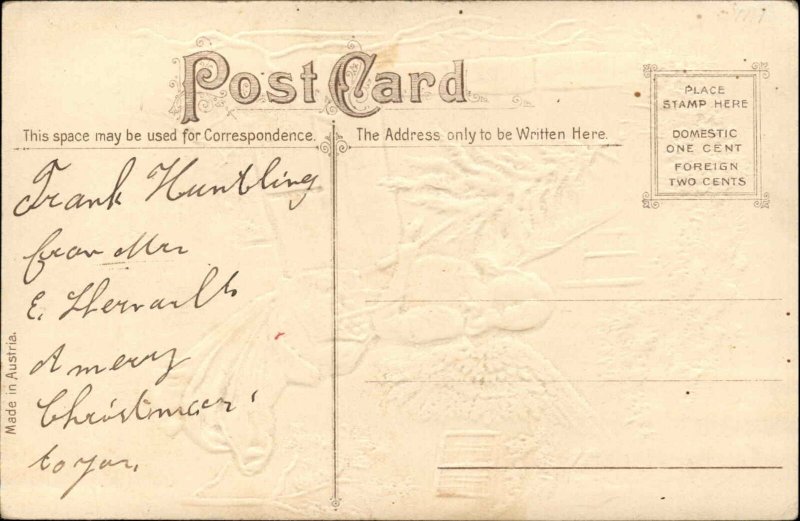 Post Card
This space may be used for Correspondence.
The Address only to be Written Here.
PLACE
STAMP HERE
DOMESTIC
ONE CENT
FOREIGN
TWO CENTS
Frank Huntling
from Mrs
E.
A merry
Christmas
to you.
Made in Austria.